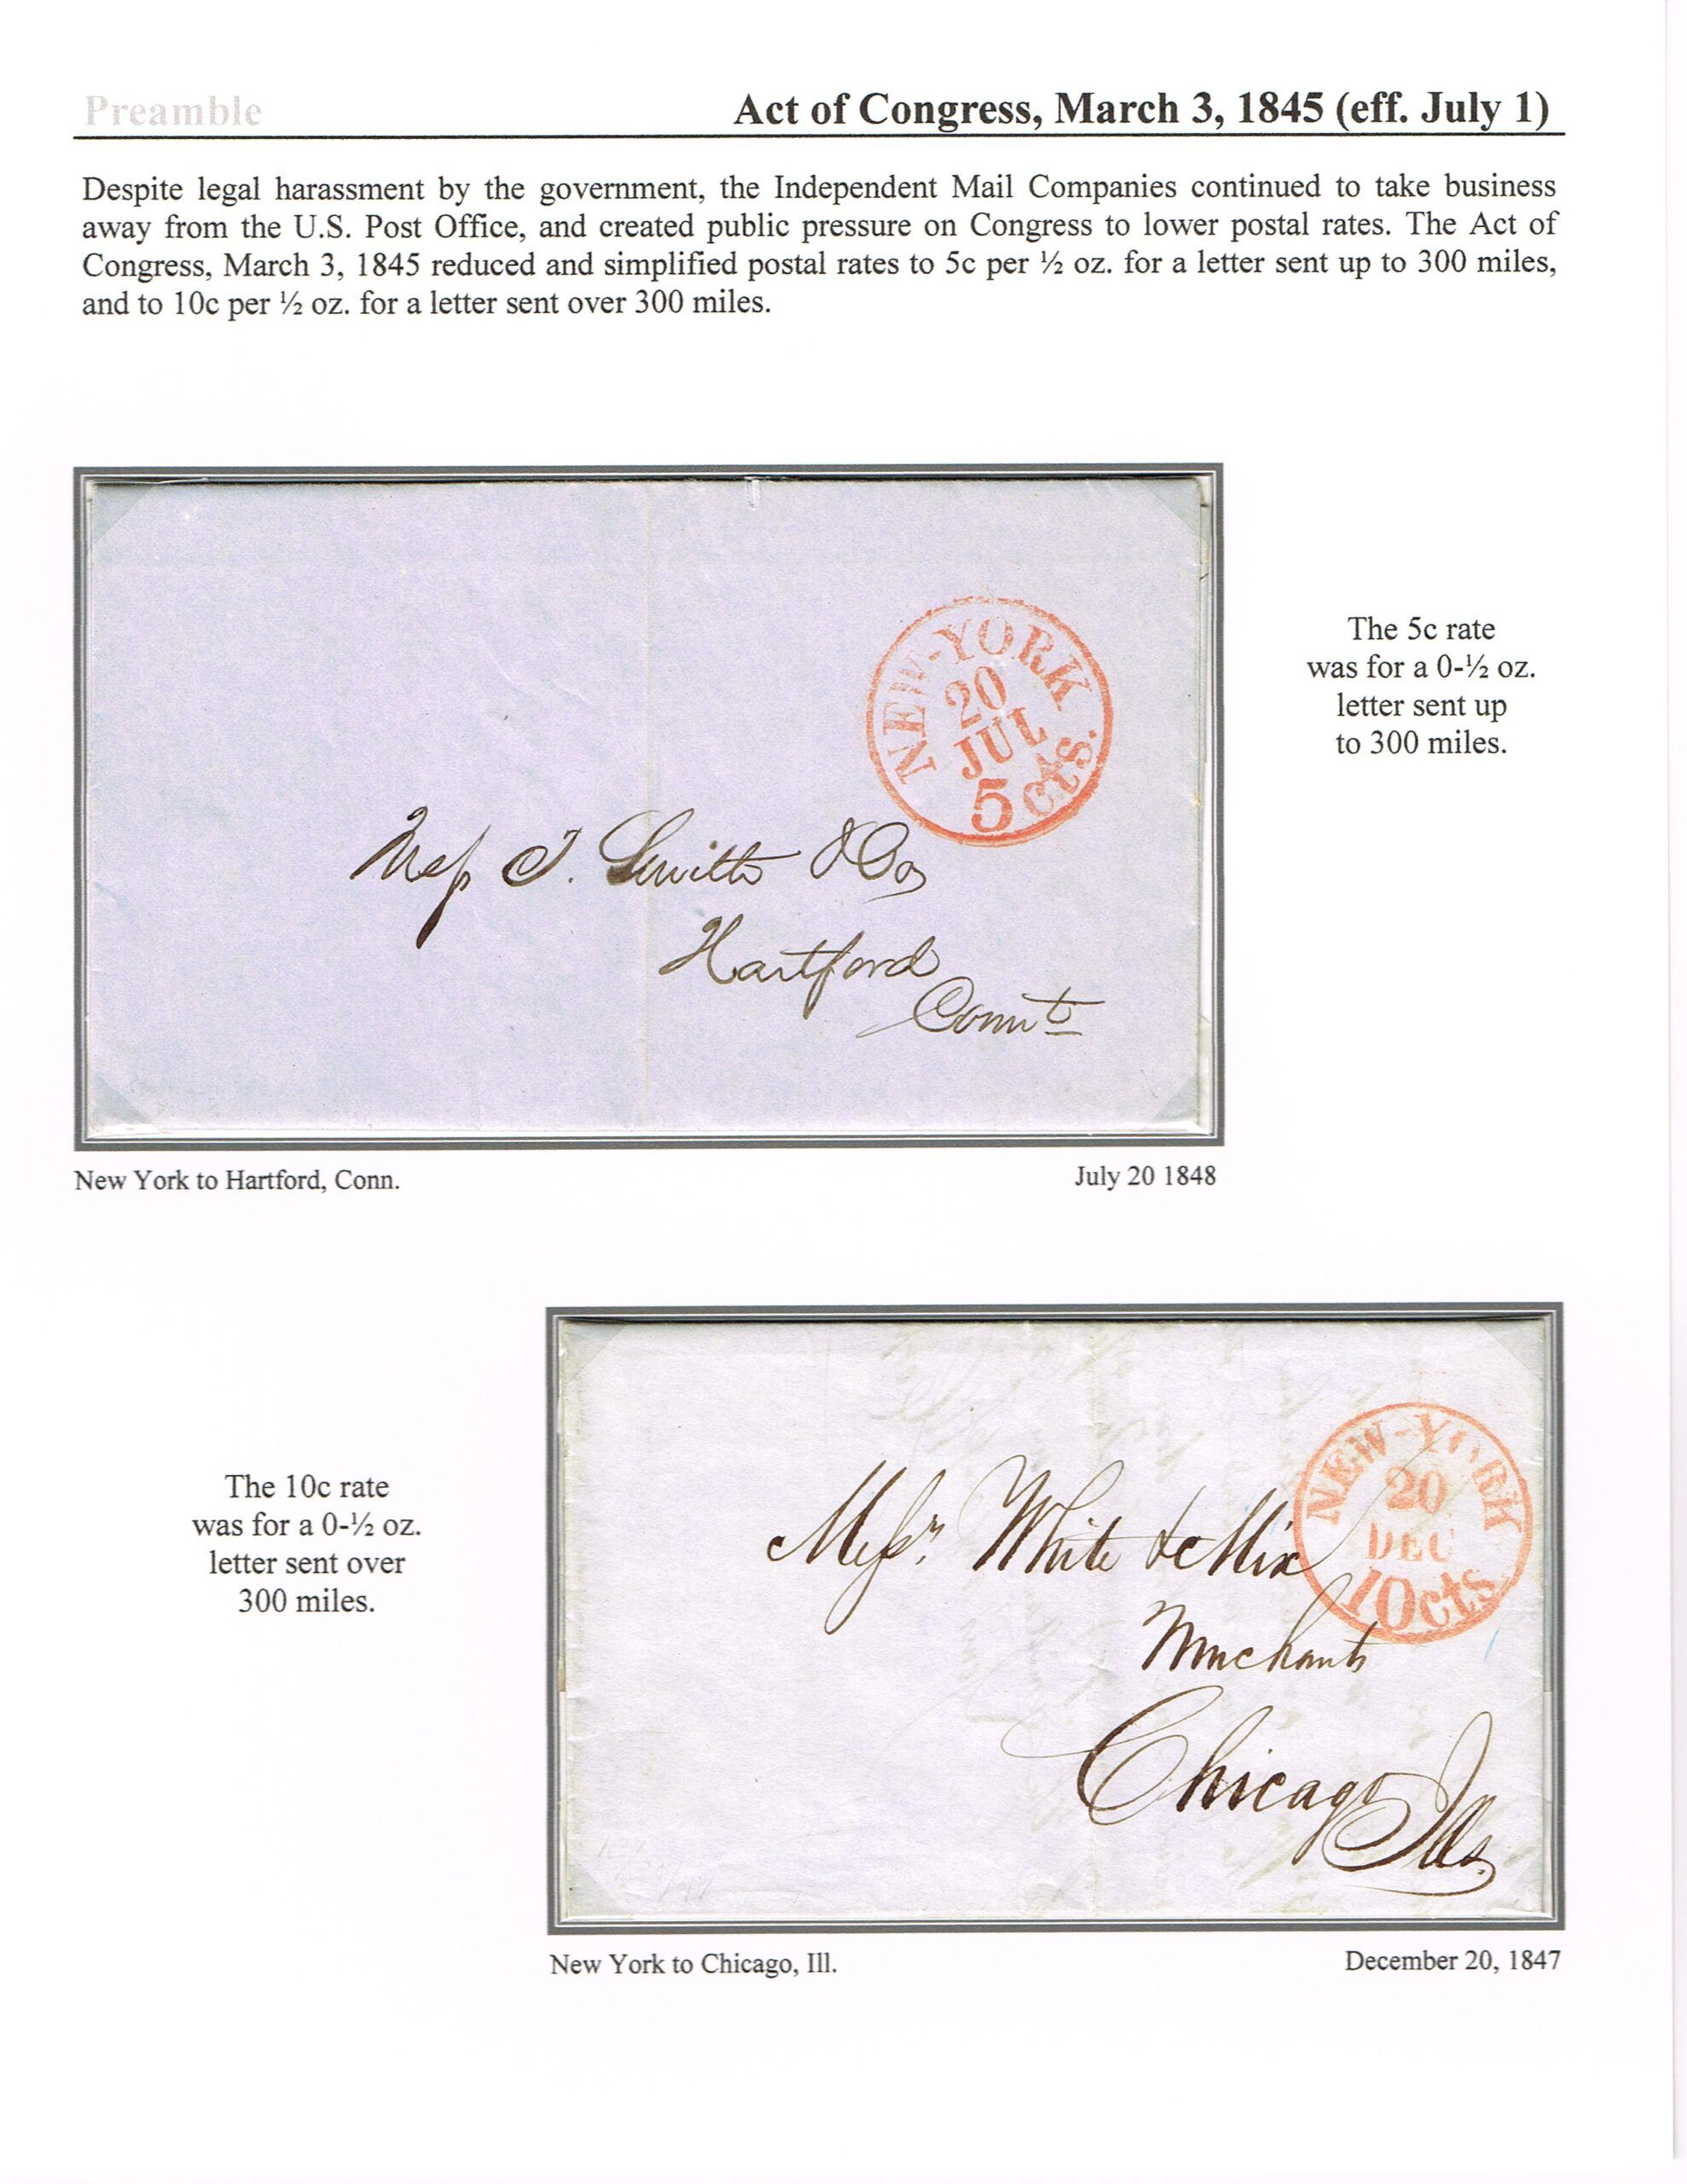 Preamble
Act of Congress, March 3, 1845 (eff. July 1)
Despite legal harassment by the government, the Independent Mail Companies continued to take business
away from the U.S. Post Office, and created public pressure on Congress to lower postal rates. The Act of
Congress, March 3, 1845 reduced and simplified postal rates to 5c per ½ oz. for a letter sent up to 300 miles,
and to 10c per ½ oz. for a letter sent over 300 miles.
NEW-YORK
20
JUL
5 cts.
Mess J. Smith & Co
Hartford
Connt
The 5c rate
was for a 0-½ oz.
letter sent up
to 300 miles.
New York to Hartford, Conn.
July 20 1848
The 10c rate
was for a 0-½ oz.
letter sent over
300 miles.
NEW-YORK
20
DEC
10cts
Messrs. White & Mix
Merchants
Chicago
Ills
New York to Chicago, Ill.
December 20, 1847